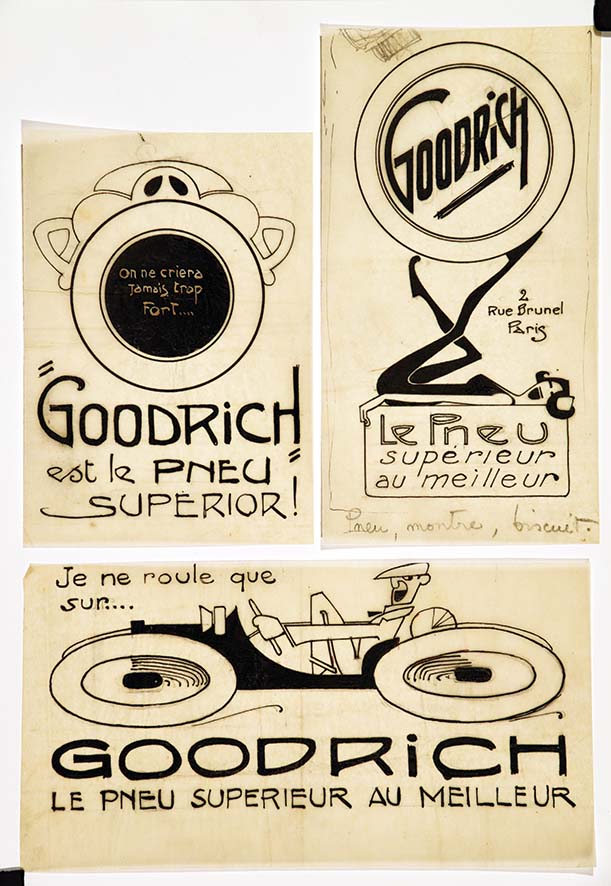 On ne criera
Jamais trop
Fort....
"GOODRiCH
est le PNEU"
SUPÉRIOR!
GOODRiCH
2
Rue Brunel
Paris
Le Pneu
supérieur
au meilleur
Pneu, montre, biscuit.
Je ne roule que
sur....
GOODRiCH
LE PNEU SUPERIEUR AU MEILLEUR